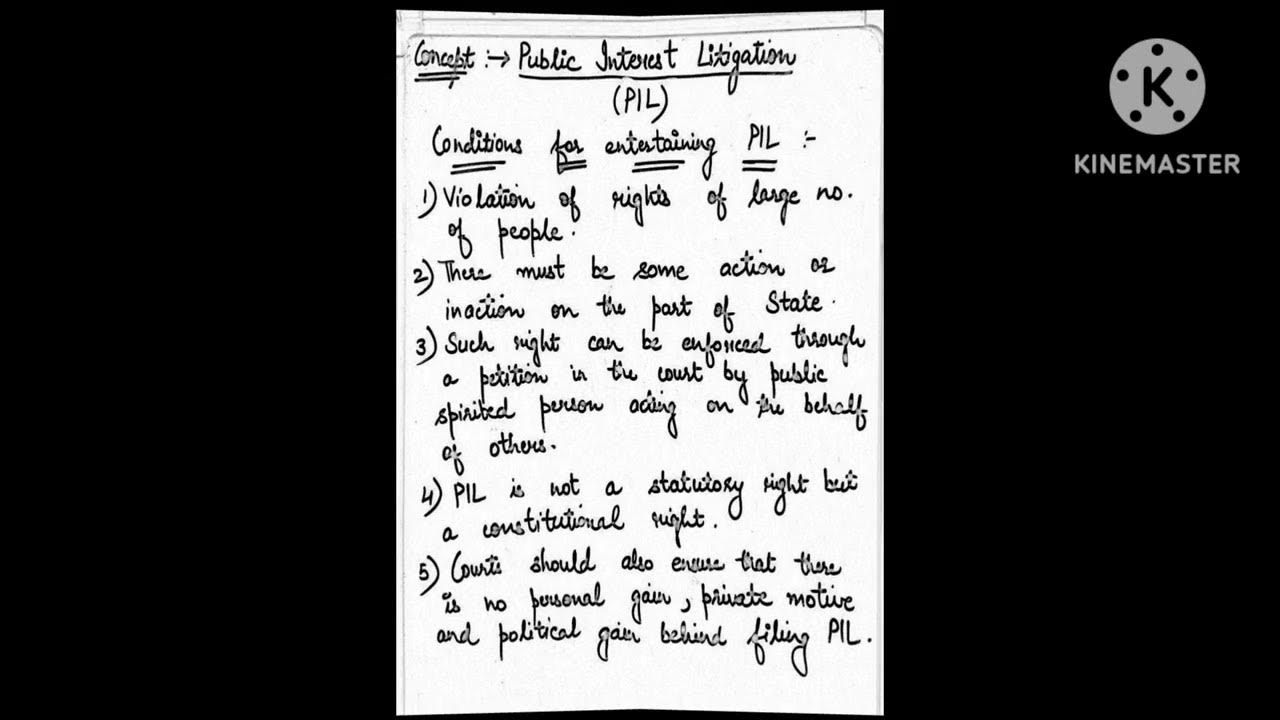 Concept :→ Public Interest Litigation
(PIL)
Conditions for entertaining PIL :-
1) Violation of rights of large no.
of people.
2) There must be some action or
inaction on the part of State.
3) Such right can be enforced through
a petition in the court by public
spirited person acting on the behalf
of others.
4) PIL is not a statutory right but
a constitutional right.
5) Courts should also ensure that there
is no personal gain, private motive
and political gain behind filing PIL.
K
KINEMASTER